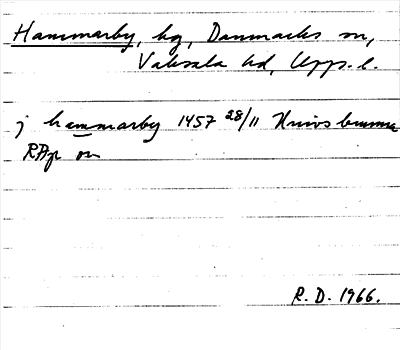 Hammarby, by, Danmarks sn,
Vaksala hd, Upps. l.
j hammarby 1457 28/11 Knivsbrunna
RAp or
R. D. 1966.